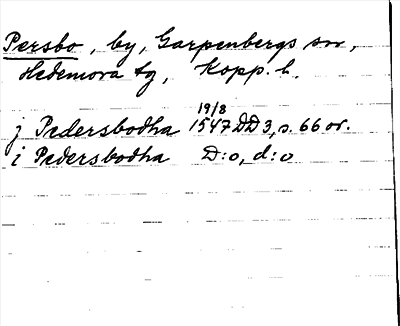 Persbo, by, Garpenbergs sn,
Hedemora tg, Kopp. l.
19/8
j Pedersbodha 1547 DD 3, s. 66 or.
i Pedersbodha D:o, d:o